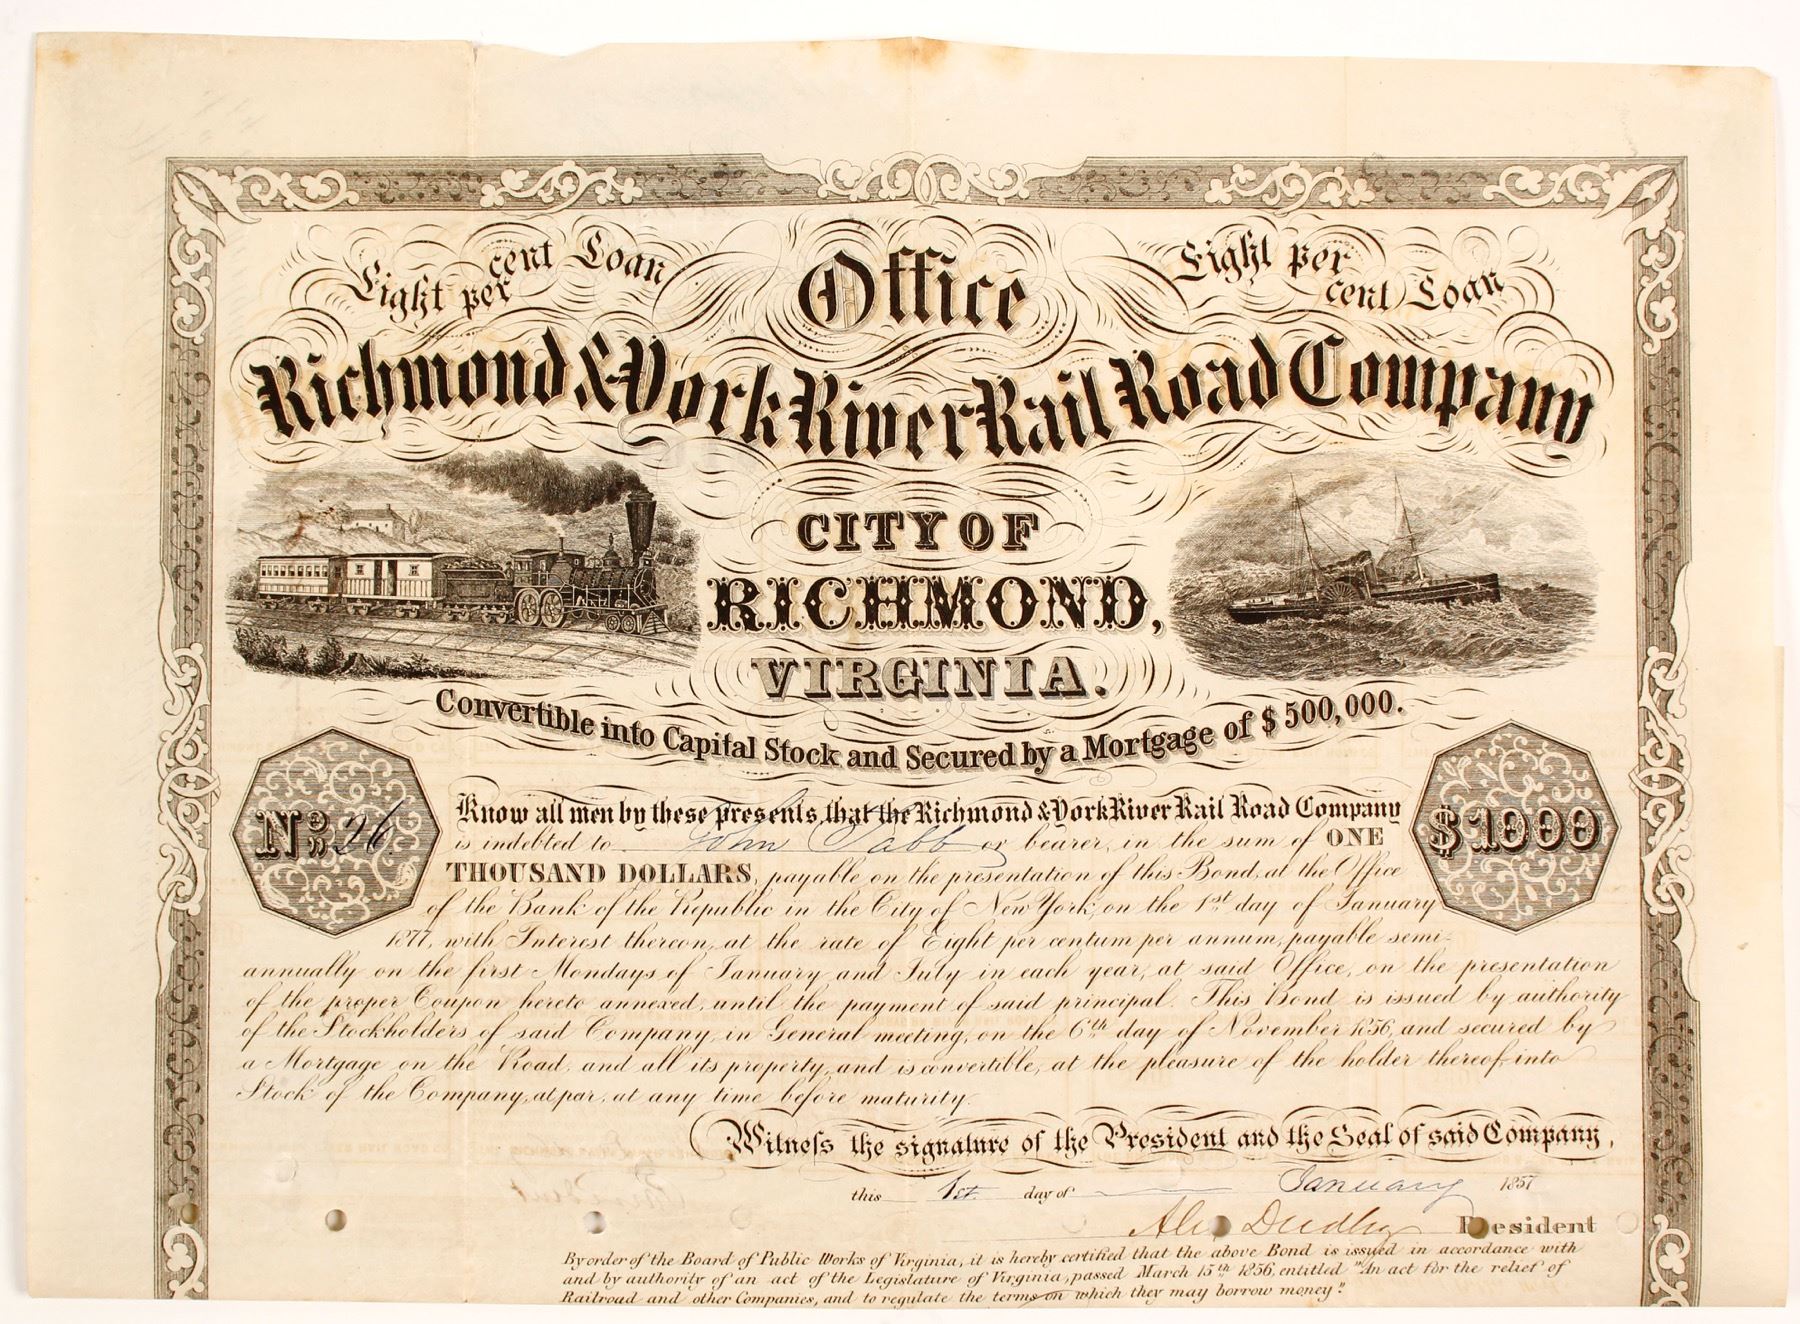 Eight per cent Loan
Office
Eight per cent Loan
Richmond & York River Rail Road Company
CITY OF
RICHMOND,
VIRGINIA.
Convertible into Capital Stock and Secured by a Mortgage of $500,000.
No. 26
$1000
Know all men by these presents, that the Richmond & York River Rail Road Company
is indebted to John Tabb or bearer, in the sum of ONE
THOUSAND DOLLARS, payable on the presentation of this Bond, at the Office
of the Bank of the Republic in the City of New York, on the 1st day of January
1877, with Interest thereon, at the rate of Eight per centum per annum, payable semi-
annually on the first Mondays of January and July in each year, at said Office, on the presentation
of the proper Coupon hereto annexed, until the payment of said principal. This Bond is issued by authority
of the Stockholders of said Company, in General meeting, on the 6th day of November 1856, and secured by
a Mortgage on the Road, and all its property, and is convertible, at the pleasure of the holder thereof, into
Stock of the Company, at par, at any time before maturity.
Witness the signature of the President and the Seal of said Company,
this 1st day of January 1857
Alex Dudley President
By order of the Board of Public Works of Virginia, it is hereby certified that the above Bond is issued in accordance with
and by authority of an act of the Legislature of Virginia, passed March 15th 1856, entitled "An act for the relief of
Railroad and other Companies, and to regulate the terms on which they may borrow money."